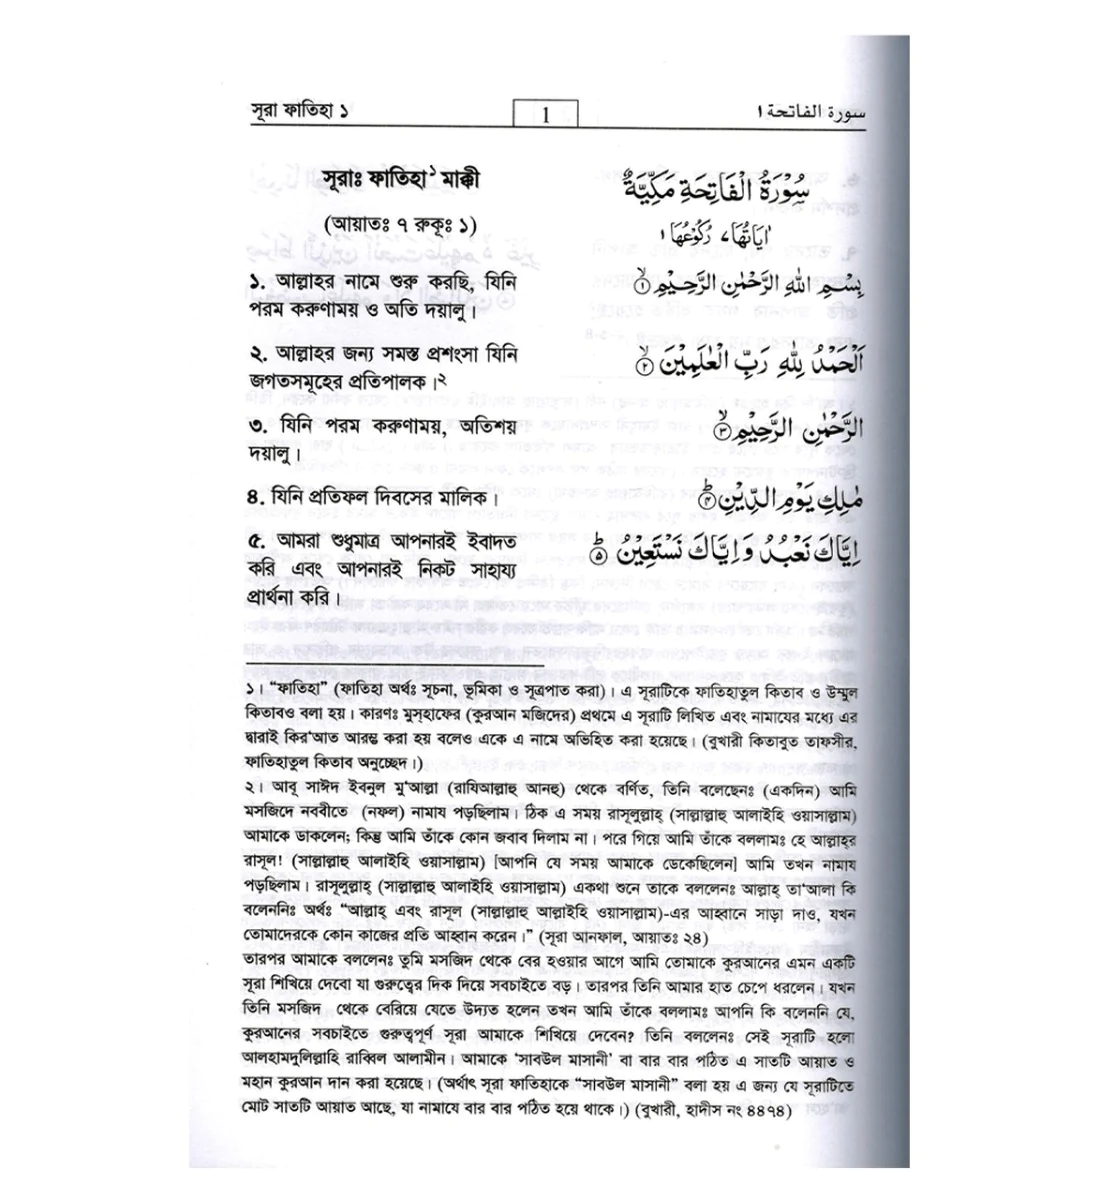 সূরা ফাতিহা ১
1
سورة الفاتحة ١
সূরাঃ ফাতিহা¹ মাক্কী
(আয়াতঃ ৭ রুকূঃ ১)
১. আল্লাহর নামে শুরু করছি, যিনি
পরম করুণাময় ও অতি দয়ালু।
২. আল্লাহর জন্য সমস্ত প্রশংসা যিনি
জগতসমূহের প্রতিপালক।২
৩. যিনি পরম করুণাময়, অতিশয়
দয়ালু।
৪. যিনি প্রতিফল দিবসের মালিক।
৫. আমরা শুধুমাত্র আপনারই ইবাদত
করি এবং আপনারই নিকট সাহায্য
প্রার্থনা করি।
سُوْرَةُ الْفَاتِحَةِ مَكِّيَّةٌ
اٰيَاتُهَا ٧ رُكُوْعُهَا ١
بِسْمِ اللهِ الرَّحْمٰنِ الرَّحِيْمِ ۙ﴿١﴾
اَلْحَمْدُ لِلّٰهِ رَبِّ الْعٰلَمِيْنَ ۙ﴿٢﴾
الرَّحْمٰنِ الرَّحِيْمِ ۙ﴿٣﴾
مٰلِكِ يَوْمِ الدِّيْنِ ؕ﴿٤﴾
اِيَّاكَ نَعْبُدُ وَاِيَّاكَ نَسْتَعِيْنُ ؕ﴿٥﴾
১। “ফাতিহা” (ফাতিহা অর্থঃ সূচনা, ভূমিকা ও সূত্রপাত করা)। এ সূরাটিকে ফাতিহাতুল কিতাব ও উম্মুল
কিতাবও বলা হয়। কারণঃ মুস্‌হাফের (কুরআন মজিদের) প্রথমে এ সূরাটি লিখিত এবং নামাযের মধ্যে এর
দ্বারাই কির‘আত আরম্ভ করা হয় বলেও একে এ নামে অভিহিত করা হয়েছে। (বুখারী কিতাবুত তাফসীর,
ফাতিহাতুল কিতাব অনুচ্ছেদ।)
২। আবূ সাঈদ ইবনুল মু‘আল্লা (রাযিআল্লাহু আনহু) থেকে বর্ণিত, তিনি বলেছেনঃ (একদিন) আমি
মসজিদে নববীতে (নফল) নামায পড়ছিলাম। ঠিক এ সময় রাসূলুল্লাহ্ (সাল্লাল্লাহু আলাইহি ওয়াসাল্লাম)
আমাকে ডাকলেন; কিন্তু আমি তাঁকে কোন জবাব দিলাম না। পরে গিয়ে আমি তাঁকে বললামঃ হে আল্লাহ্‌র
রাসূল! (সাল্লাল্লাহু আলাইহি ওয়াসাল্লাম) [আপনি যে সময় আমাকে ডেকেছিলেন] আমি তখন নামায
পড়ছিলাম। রাসূলুল্লাহ্ (সাল্লাল্লাহু আলাইহি ওয়াসাল্লাম) একথা শুনে তাকে বললেনঃ আল্লাহ্ তা‘আলা কি
বলেননিঃ অর্থঃ “আল্লাহ্ এবং রাসূল (সাল্লাল্লাহু আল্লাইহি ওয়াসাল্লাম)-এর আহ্বানে সাড়া দাও, যখন
তোমাদেরকে কোন কাজের প্রতি আহ্বান করেন।” (সূরা আনফাল, আয়াতঃ ২৪)
তারপর আমাকে বললেনঃ তুমি মসজিদ থেকে বের হওয়ার আগে আমি তোমাকে কুরআনের এমন একটি
সূরা শিখিয়ে দেবো যা গুরুত্বের দিক দিয়ে সবচাইতে বড়। তারপর তিনি আমার হাত চেপে ধরলেন। যখন
তিনি মসজিদ থেকে বেরিয়ে যেতে উদ্যত হলেন তখন আমি তাঁকে বললামঃ আপনি কি বলেননি যে,
কুরআনের সবচাইতে গুরুত্বপূর্ণ সূরা আমাকে শিখিয়ে দেবেন? তিনি বললেনঃ সেই সূরাটি হলো
আলহামদুলিল্লাহি রাব্বিল আলামীন। আমাকে ‘সাবউল মাসানী’ বা বার বার পঠিত এ সাতটি আয়াত ও
মহান কুরআন দান করা হয়েছে। (অর্থাৎ সূরা ফাতিহাকে “সাবউল মাসানী” বলা হয় এ জন্য যে সূরাটিতে
মোট সাতটি আয়াত আছে, যা নামাযে বার বার পঠিত হয়ে থাকে।) (বুখারী, হাদীস নং ৪৪৭৪)